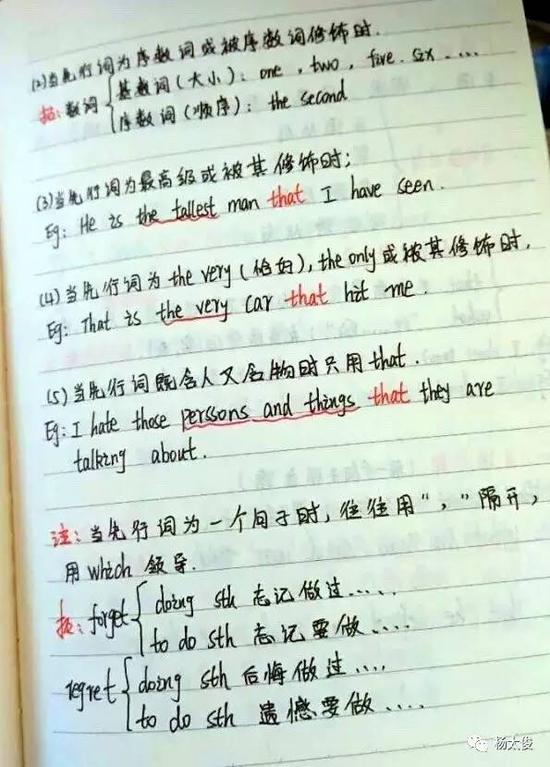 (2)当先行词为序数词或被序数词修饰时.
拓:数词{基数词(大小): one , two , five . six . ....
序数词(顺序): the second
(3)当先行词为最高级或被其修饰时;
Eg: He is the tallest man that I have seen.
(4)当先行词为the very(恰好), the only或被其修饰时.
Eg: That is the very car that hit me .
(5)当先行词既含人又含物时只用that.
Eg: I hate those perssons and things that they are
talking about.
注:当先行词为一个句子时,往往用“,”隔开,
用which 领导.
拓: forget{doing sth 忘记做过.....
to do sth 忘记要做.....
regret{doing sth 后悔做过....
to do sth 遗憾要做.....
杨太俊